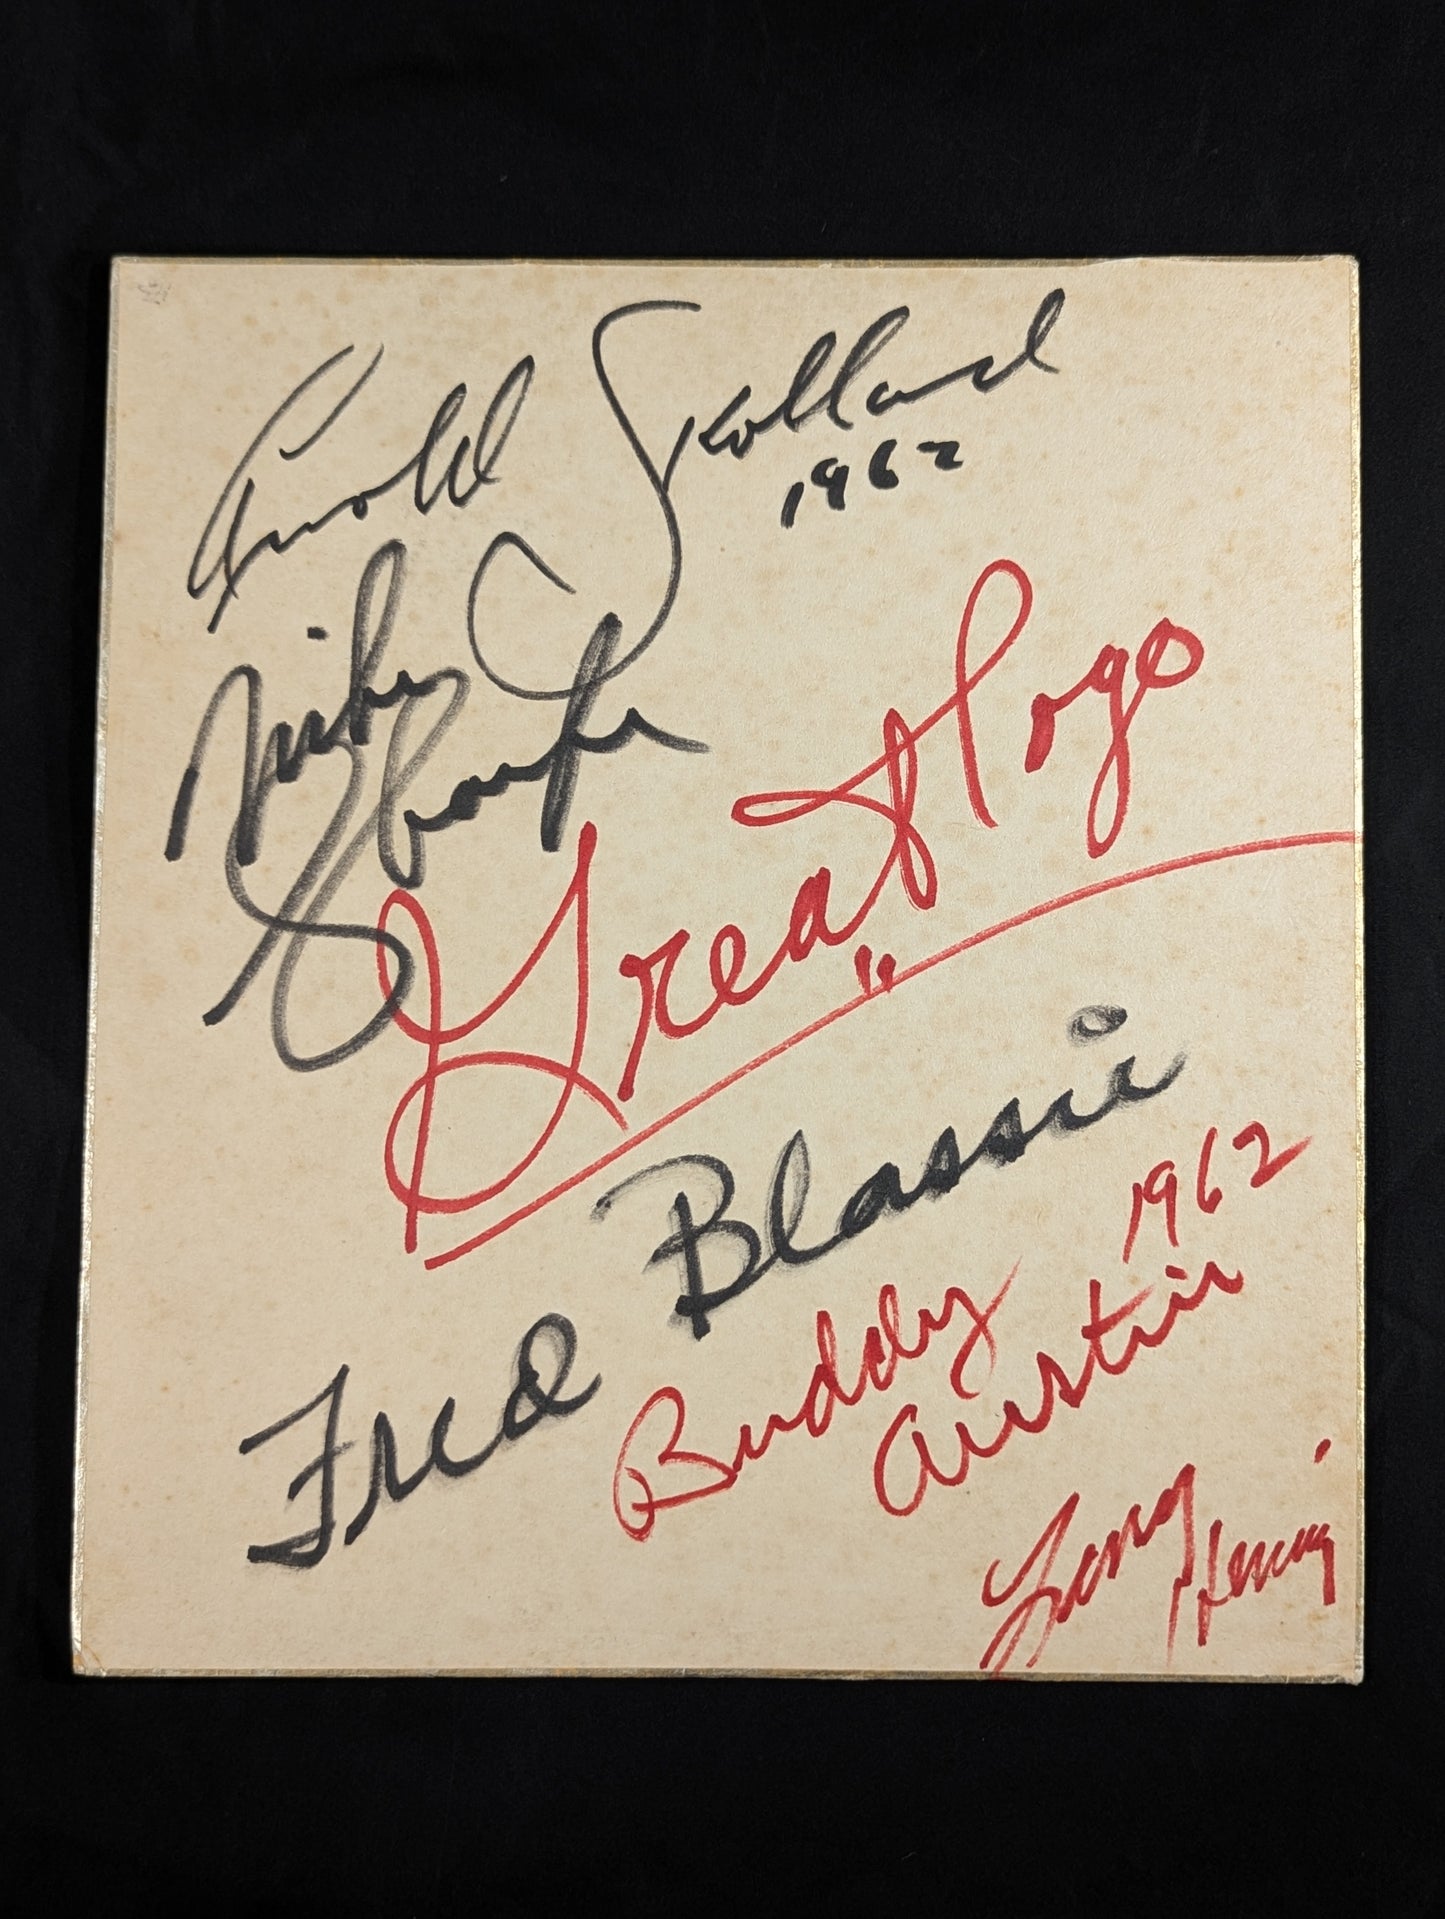 Arnold Skolland
1962
Mike Sharpe
Great Togo
"
Fred Blassie
1962
Buddy Austin
Larry Hennig